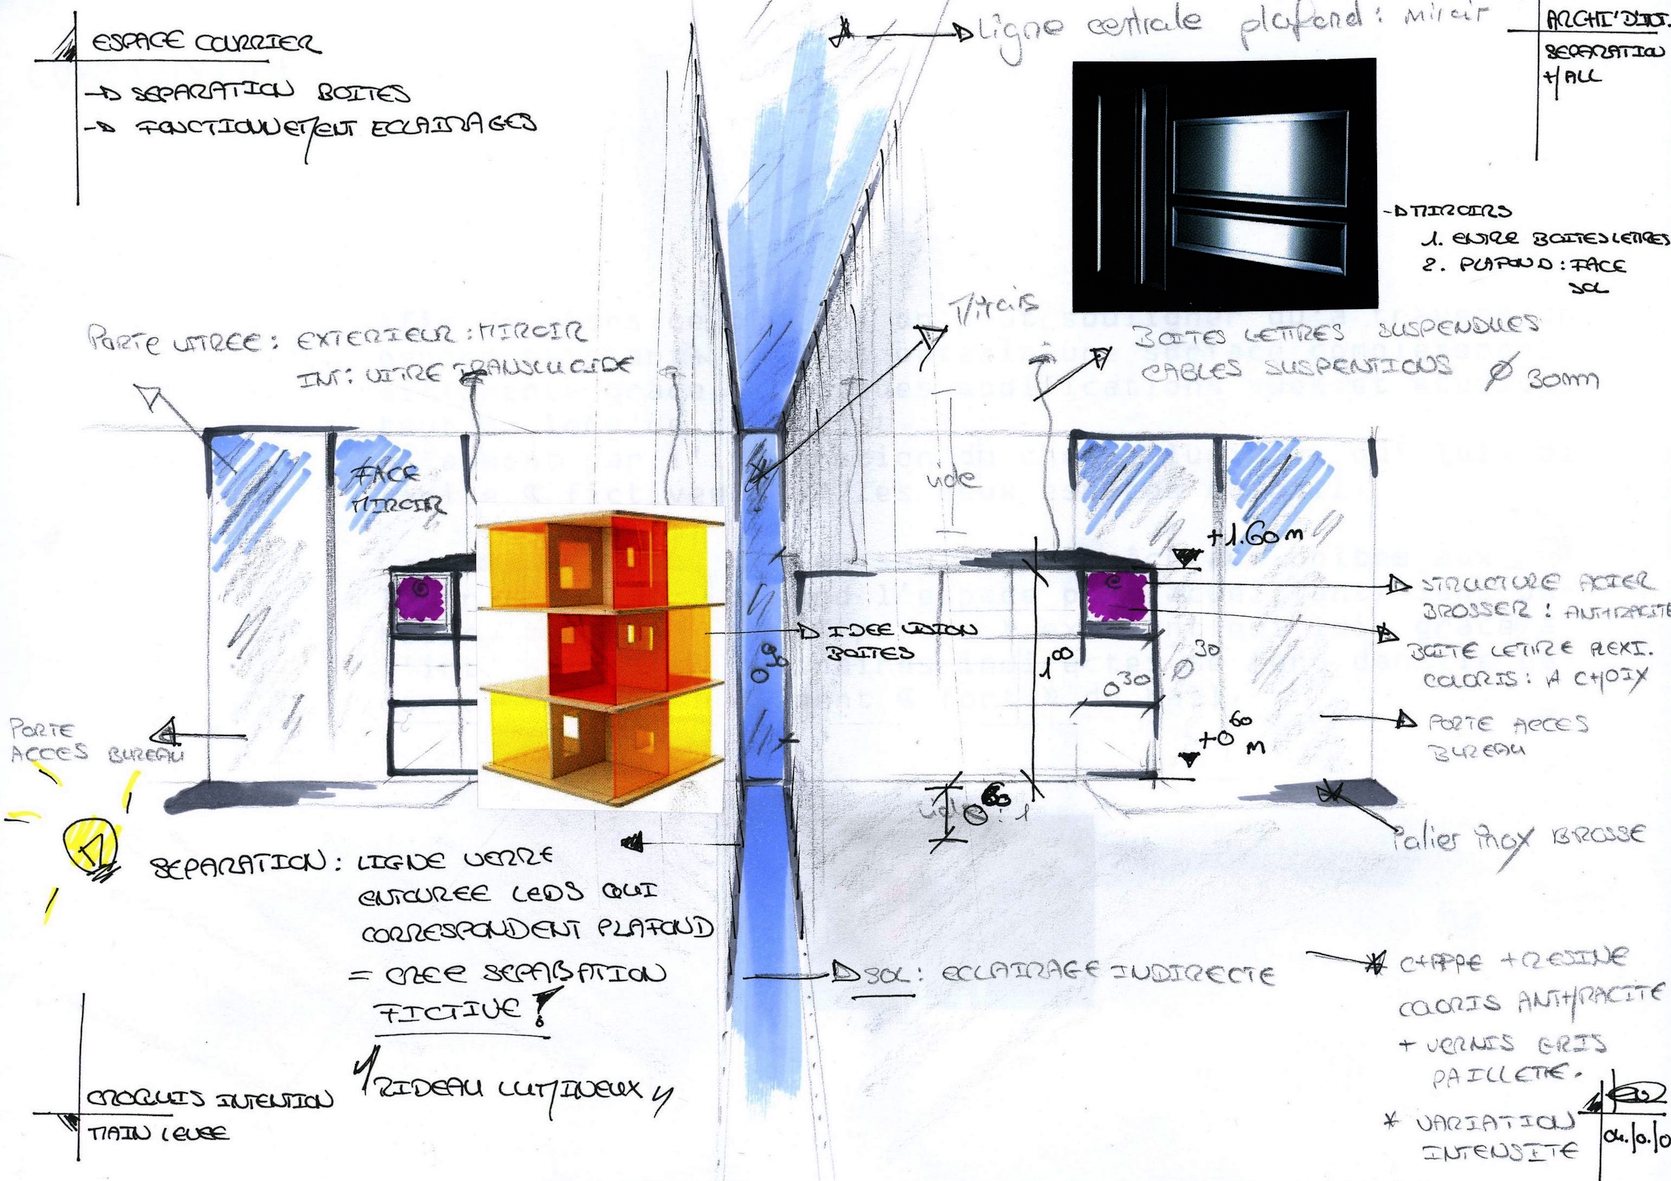 ESPACE COURRIER
→ SEPARATION BOITES
→ FONCTIONNEMENT ECLAIRAGES
Ligne centrale plafond : Miroir
ARCHI'D'INT.
SEPARATION
HALL
→ MIROIRS
1. ENTRE BOITES LETTRES
2. PLAFOND : FACE
SOL
PORTE VITREE : EXTERIEUR : MIROIR
INT : VITRE TRANSLUCIDE
BOITES LETTRES SUSPENDUES
CABLES SUSPENTIONS Ø 30mm
FACE
MIROIR
vide
+1.60m
STRUCTURE ACIER
BROSSER : ANTHRACITE
IDEE VISION
BOITES
BOITE LETTRE PLEXI.
COLORIS : A CHOIX
0.90
1.00
0.30
0.30
+0.60 m
PORTE
ACCES BUREAU
PORTE ACCES
BUREAU
vide
0.60
Palier inox BROSSE
SEPARATION : LIGNE VERRE
ENTOUREE LEDS QUI
CORRESPONDENT PLAFOND
= CREE SEPARATION
FICTIVE !
"RIDEAU LUMINEUX"
SOL : ECLAIRAGE INDIRECTE
CHAPPE + RESINE
COLORIS ANTHRACITE
+ VERNIS GRIS
PAILLETE.
* VARIATION
INTENSITE
CROQUIS INTENTION
MAIN LEVEE